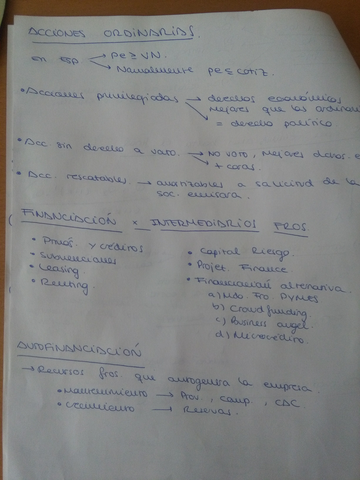 ACCIONES ORDINARIAS.
en esp → Pe ≥ VN.
→ Normalmente pe ≤ cotiz.
• Acciones privilegiadas → derechos económicos
mejores que las ordinar
→ = derecho político
• Acc sin derecho a voto. → No voto, mejores dchos. e
→ + caras.
• Acc. rescatables → amortizables a solicitud de la
soc. emisora.
FINANCIACIÓN x INTERMEDIARIOS FROS
• Ptmos. y créditos
• Subvenciones
• Leasing
• Renting
• Capital Riesgo.
• Projet. Finance
• Financiación alternativa.
a) Mdo. Fro. PYMES
b) Crowdfunding
c) Business angel.
d) Microcrédito.
AUTOFINANCIACIÓN
→ Recursos fros. que autogenera la empresa.
• Mantenimiento → Am, , CDC.
• Crecimiento → Reservas.